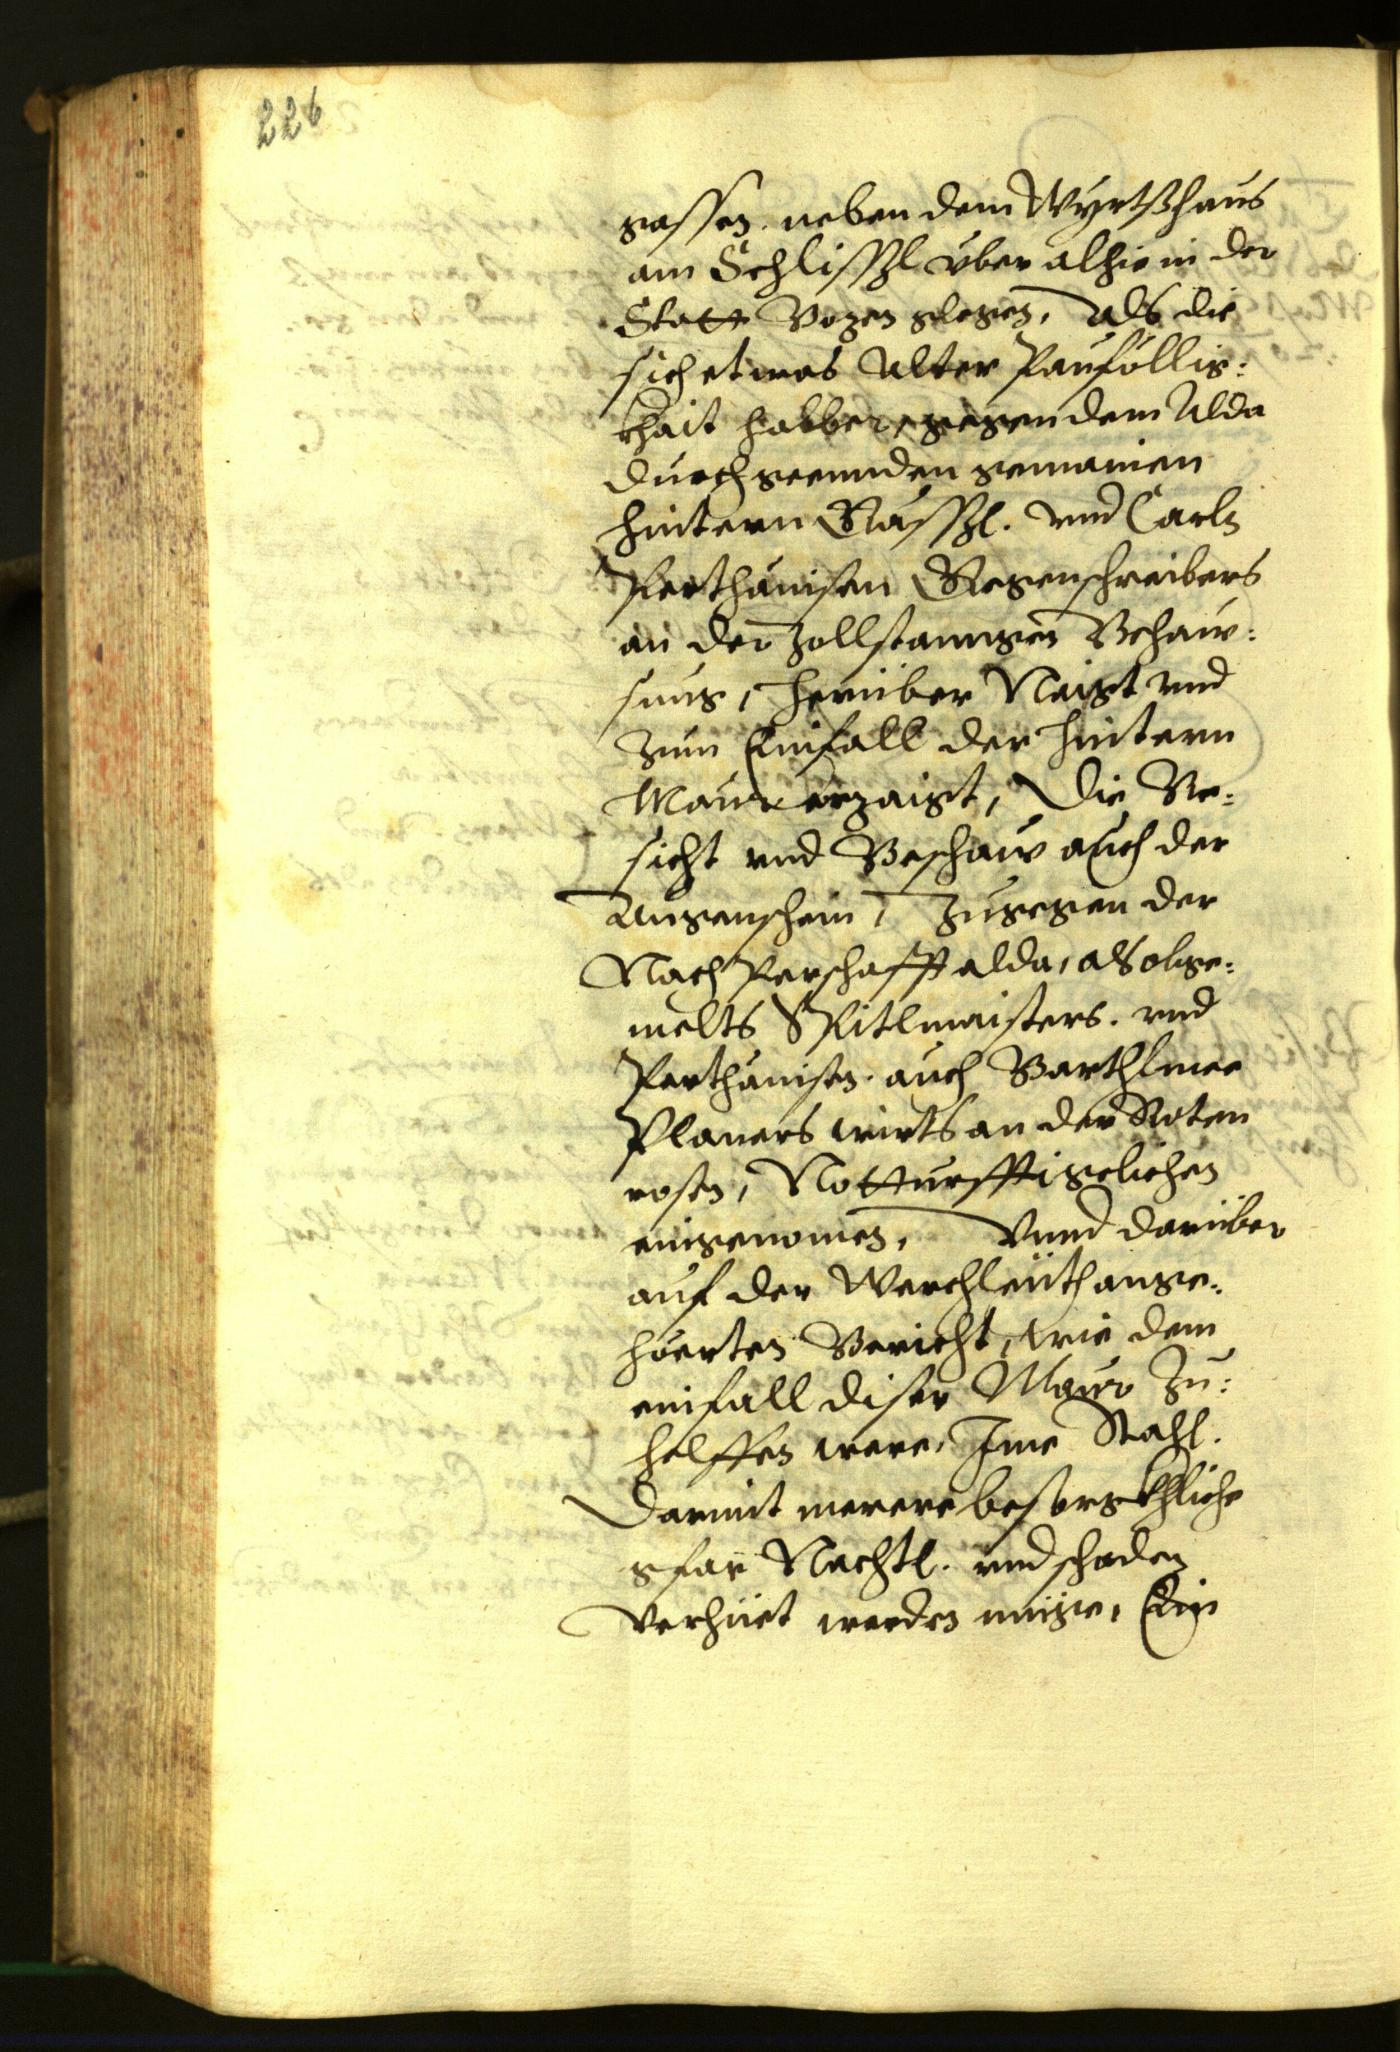 226
gassen. neben dem Wyrtßhaus
am Schlissl vber alhie in der
Statt Bozen gelegen, Als die
sich etwas Alter Pauföllig:
khait halber, gegen dem Alda
durchgeenden gemainen
hintern Gässl. vnd Carln
Perthanisen Gegenschreibers
an der Zollstanngen Behaw:
sung, herüber Naigt vnd
zum Einfall der hintern
Maur erzaigt, Die Be:
sicht vnd Beschaw auch der
Augenschein, Zugegen der
Nachperschafft alda, als obge:
melts Spitlmaisters. vnd
Perthanisen. auch Barthlmee
Planers wirts an der Roten
rosen, Notturfftigelichen
eingenomen, Vnnd darüber
auf der Werchleüth ange:
hoerten Bericht, wie dem
einfall diser Maur Zu:
helffen were, Ime Stahl.
Darmit merere besorgkhliche
gfar Nachtl. vnd schaden
verhüet werden müge, Ein